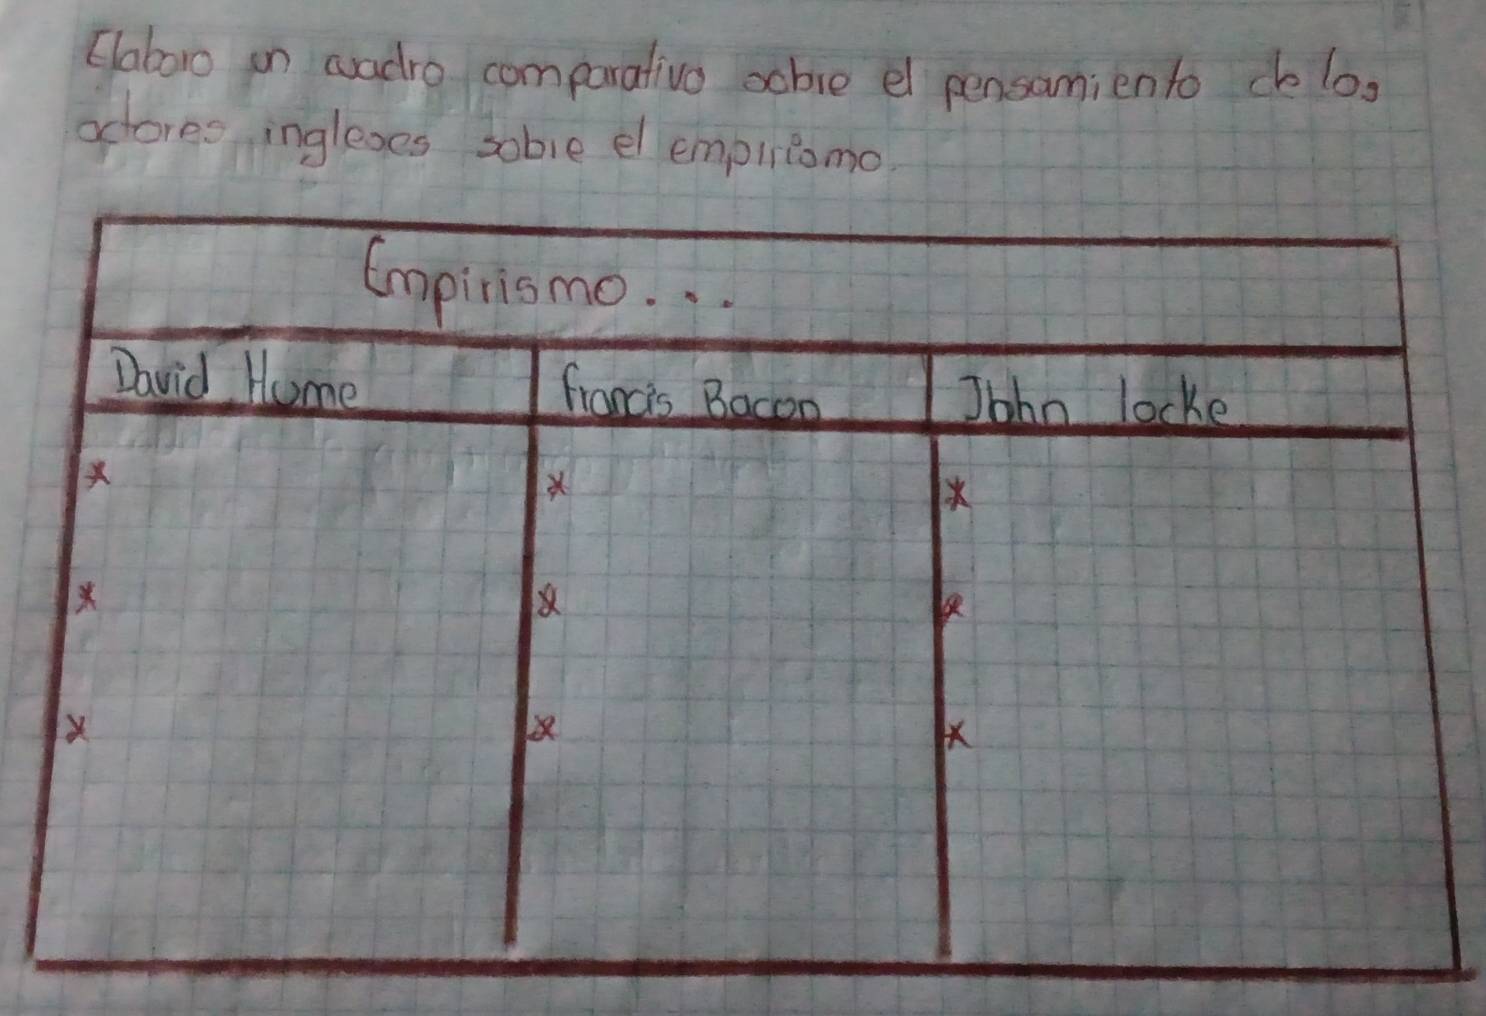 Elaboro un cuadro comparativo sobre el pensamiento de los
actores ingleses sobre el empirismo.
Empirismo...
David Hume
francis Bacon
John locke
* * *
* * *
* * *